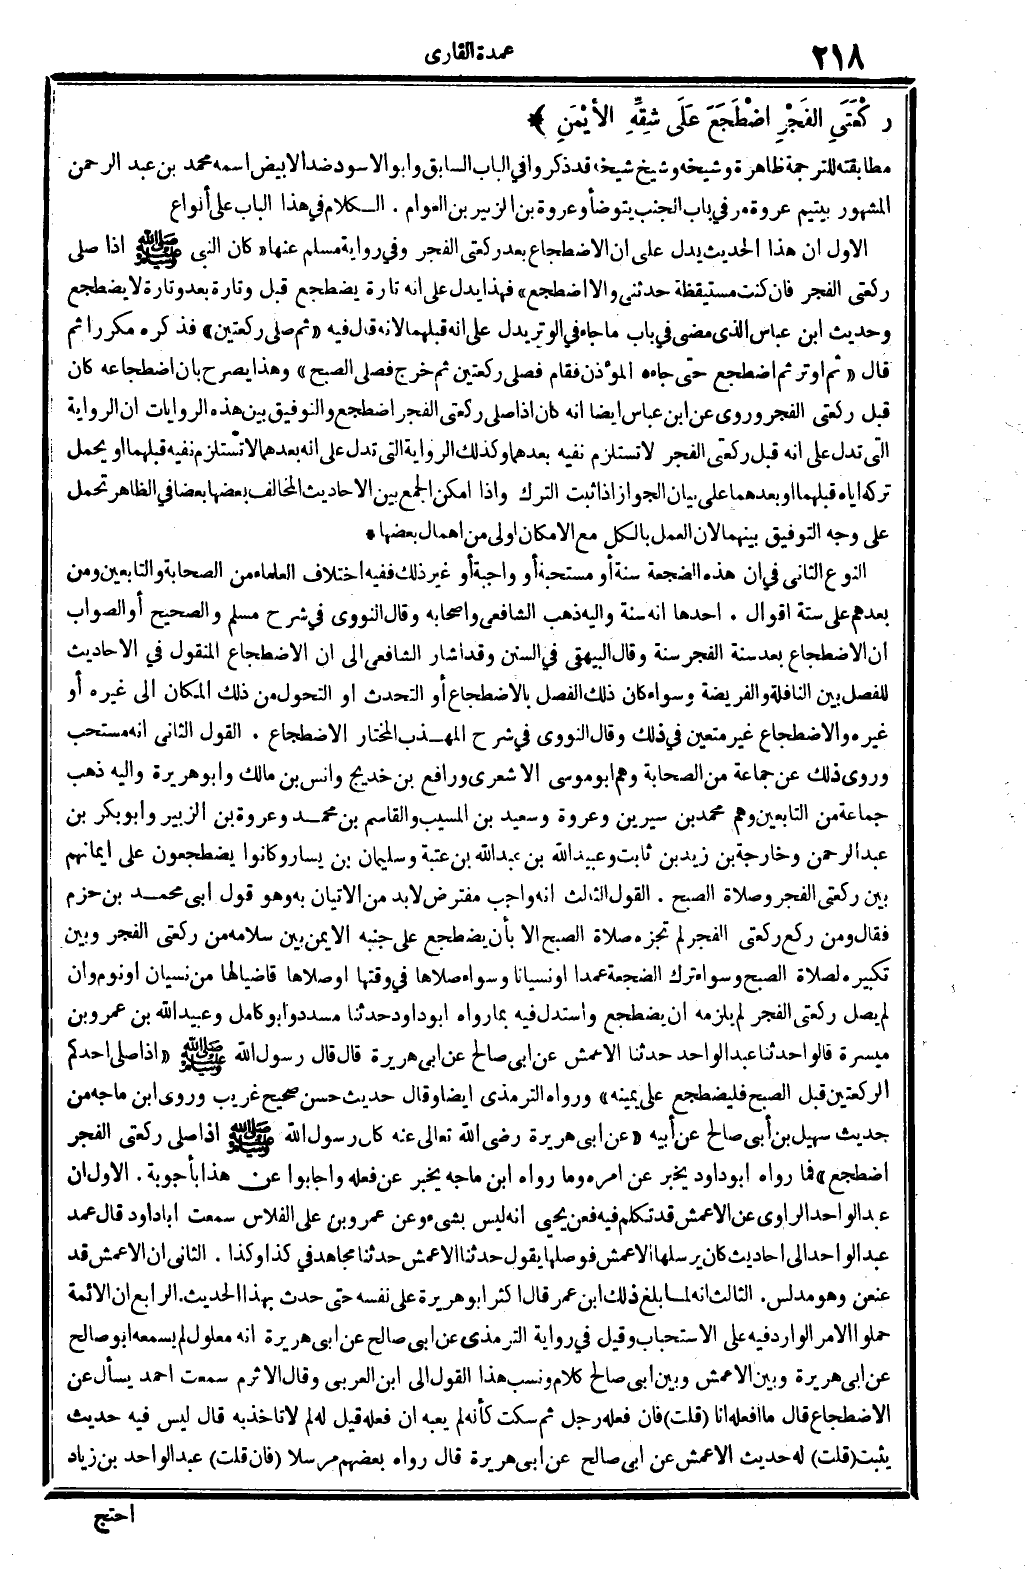 ٢١٨
عمدة القارى
ركْعَتَيِ الفَجْرِ اضْطَجَعَ عَلَى شِقِّهِ الأيْمَنِ ﴾
مطابقته للترجمة ظاهرة وشيخه وشيخ شيخه قد ذكروا في الباب السابق وابو الاسود ضد الابيض اسمه محمد بن عبد الرحمن
المشهور بيتيم عروة مر في باب الجنب يتوضأ وعروة بن الزبير بن العوام . الكلام في هذا الباب على أنواع
الاول ان هذا الحديث يدل على ان الاضطجاع بعد ركعتى الفجر وفي رواية مسلم عنها «كان النبى ﷺ اذا صلى
ركعتى الفجر فان كنت مستيقظة حدثنى والا اضطجع» فهذا يدل على انه تارة يضطجع قبل وتارة بعد وتارة لا يضطجع
وحديث ابن عباس الذى مضى في باب ما جاء في الوتر يدل على انه قبلهما لانه قال فيه «ثم صلى ركعتين» فذكره مكررا ثم
قال «ثم اوتر ثم اضطجع حتى جاءه المؤذن فقام فصلى ركعتين ثم خرج فصلى الصبح» وهذا يصرح بان اضطجاعه كان
قبل ركعتى الفجر وروى عن ابن عباس ايضا انه كان اذا صلى ركعتى الفجر اضطجع والتوفيق بين هذه الروايات ان الرواية
التى تدل على انه قبل ركعتى الفجر لا تستلزم نفيه بعدهما وكذلك الرواية التى تدل على انه بعدهما لا تستلزم نفيه قبلهما او يحمل
تركه اياه قبلهما او بعدهما على بيان الجواز اذا ثبت الترك واذا امكن الجمع بين الاحاديث المخالف بعضها بعضا في الظاهر تحمل
على وجه التوفيق بينهما لان العمل بالكل مع الامكان اولى من اهمال بعضها *
النوع الثانى في ان هذه الضجعة سنة أو مستحبة أو واجبة أو غير ذلك ففيه اختلاف العلماء من الصحابة والتابعين ومن
بعدهم على ستة اقوال . احدها انه سنة واليه ذهب الشافعى واصحابه وقال النووى في شرح مسلم والصحيح أو الصواب
ان الاضطجاع بعد سنة الفجر سنة وقال البيهقى في السنن وقد اشار الشافعى الى ان الاضطجاع المنقول في الاحاديث
للفصل بين النافلة والفريضة وسواء كان ذلك الفصل بالاضطجاع أو التحدث او التحول من ذلك المكان الى غيره أو
غيره والاضطجاع غير متعين في ذلك وقال النووى في شرح المهذب المختار الاضطجاع . القول الثانى انه مستحب
وروى ذلك عن جماعة من الصحابة وهم ابو موسى الاشعرى ورافع بن خديج وانس بن مالك وابو هريرة واليه ذهب
جماعة من التابعين وهم محمد بن سيرين وعروة وسعيد بن المسيب والقاسم بن محمد وعروة بن الزبير وابو بكر بن
عبد الرحمن وخارجة بن زيد بن ثابت وعبيد الله بن عبد الله بن عتبة وسليمان بن يسار وكانوا يضطجعون على ايمانهم
بين ركعتى الفجر وصلاة الصبح . القول الثالث انه واجب مفترض لابد من الاتيان به وهو قول ابى محمد بن حزم
فقال ومن ركع ركعتى الفجر لم تجزه صلاة الصبح الا بأن يضطجع على جنبه الايمن بين سلامه من ركعتى الفجر وبين
تكبيره لصلاة الصبح وسواء ترك الضجعة عمدا او نسيانا وسواء صلاها في وقتها او صلاها قاضيا لها من نسيان او نوم وان
لم يصل ركعتى الفجر لم يلزمه ان يضطجع واستدل فيه بما رواه ابو داود حدثنا مسدد وابو كامل وعبيد الله بن عمرو بن
ميسرة قالوا حدثنا عبد الواحد حدثنا الاعمش عن ابى صالح عن ابى هريرة قال قال رسول الله ﷺ «اذا صلى احدكم
الركعتين قبل الصبح فليضطجع على يمينه» ورواه الترمذى ايضا وقال حديث حسن صحيح غريب وروى ابن ماجه من
حديث سهيل بن أبى صالح عن أبيه «عن ابى هريرة رضى الله تعالى عنه كان رسول الله ﷺ اذا صلى ركعتى الفجر
اضطجع» فما رواه ابو داود يخبر عن امره وما رواه ابن ماجه يخبر عن فعله واجابوا عن هذا بأجوبة . الاول ان
عبد الواحد الراوى عن الاعمش قد تكلم فيه فعن يحيى انه ليس بشىء وعن عمرو بن على الفلاس سمعت اباداود قال عمد
عبد الواحد الى احاديث كان يرسلها الاعمش فوصلها يقول حدثنا الاعمش حدثنا مجاهد في كذا وكذا . الثانى ان الاعمش قد
عنعن وهو مدلس . الثالث انه لما بلغ ذلك ابن عمر قال اكثر ابو هريرة على نفسه حتى حدث بهذا الحديث . الرابع ان الائمة
حملوا الامر الوارد فيه على الاستحباب وقيل في رواية الترمذى عن ابى صالح عن ابى هريرة انه معلول لم يسمعه ابو صالح
عن ابى هريرة وبين الاعمش وبين ابى صالح كلام ونسب هذا القول الى ابن العربى وقال الاثرم سمعت احمد يسأل عن
الاضطجاع قال ما افعله انا (قلت) فان فعله رجل ثم سكت كأنه لم يعبه ان فعله قيل له لم لا تاخذ به قال ليس فيه حديث
يثبت (قلت) له حديث الاعمش عن ابى صالح عن ابى هريرة قال رواه بعضهم مرسلا (فان قلت) عبد الواحد بن زياد
احتج